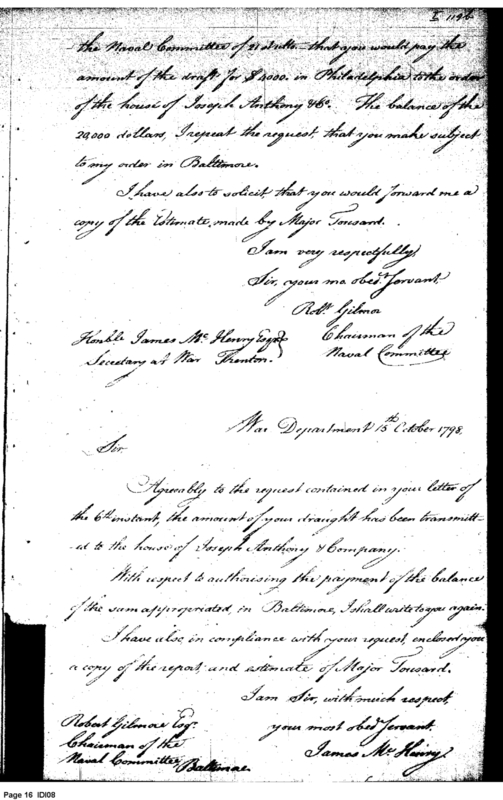 the Naval Committee of 21st ulto - that you would pay the
amount of the draft for $ 4000. in Philadelphia to the order
of the house of Joseph Anthony & Co. The balance of the
20,000 dollars, I repeat the request, that you make subject
to my order in Baltimore.
I have also to solicit, that you would forward me a
copy of the Estimate, made by Major Tousard.
I am very respectfully
Sir, your mo. obedt. Servant
Robt. Gilmor
Chairman of the
Naval Committee
Honble James Mc. Henry Esqr.
Secretary at War Trenton.
War Department 15th October 1798.
Sir,
Agreeably to the request contained in your letter of
the 6th instant, the amount of your draught has been transmitt-
-ed to the house of Joseph Anthony & Company.
With respect to authorising the payment of the balance
of the sum appropriated, in Baltimore, I shall write to you again.
I have also, in compliance with your request, enclosed you
a copy of the report, and estimate of Major Tousard.
I am Sir, with much respect,
your most obedt. Servant.
James Mc. Henry.
Robert Gilmore Esqr.
Chairman of the
Naval Committee, Baltimore.
Page 16 IDI08